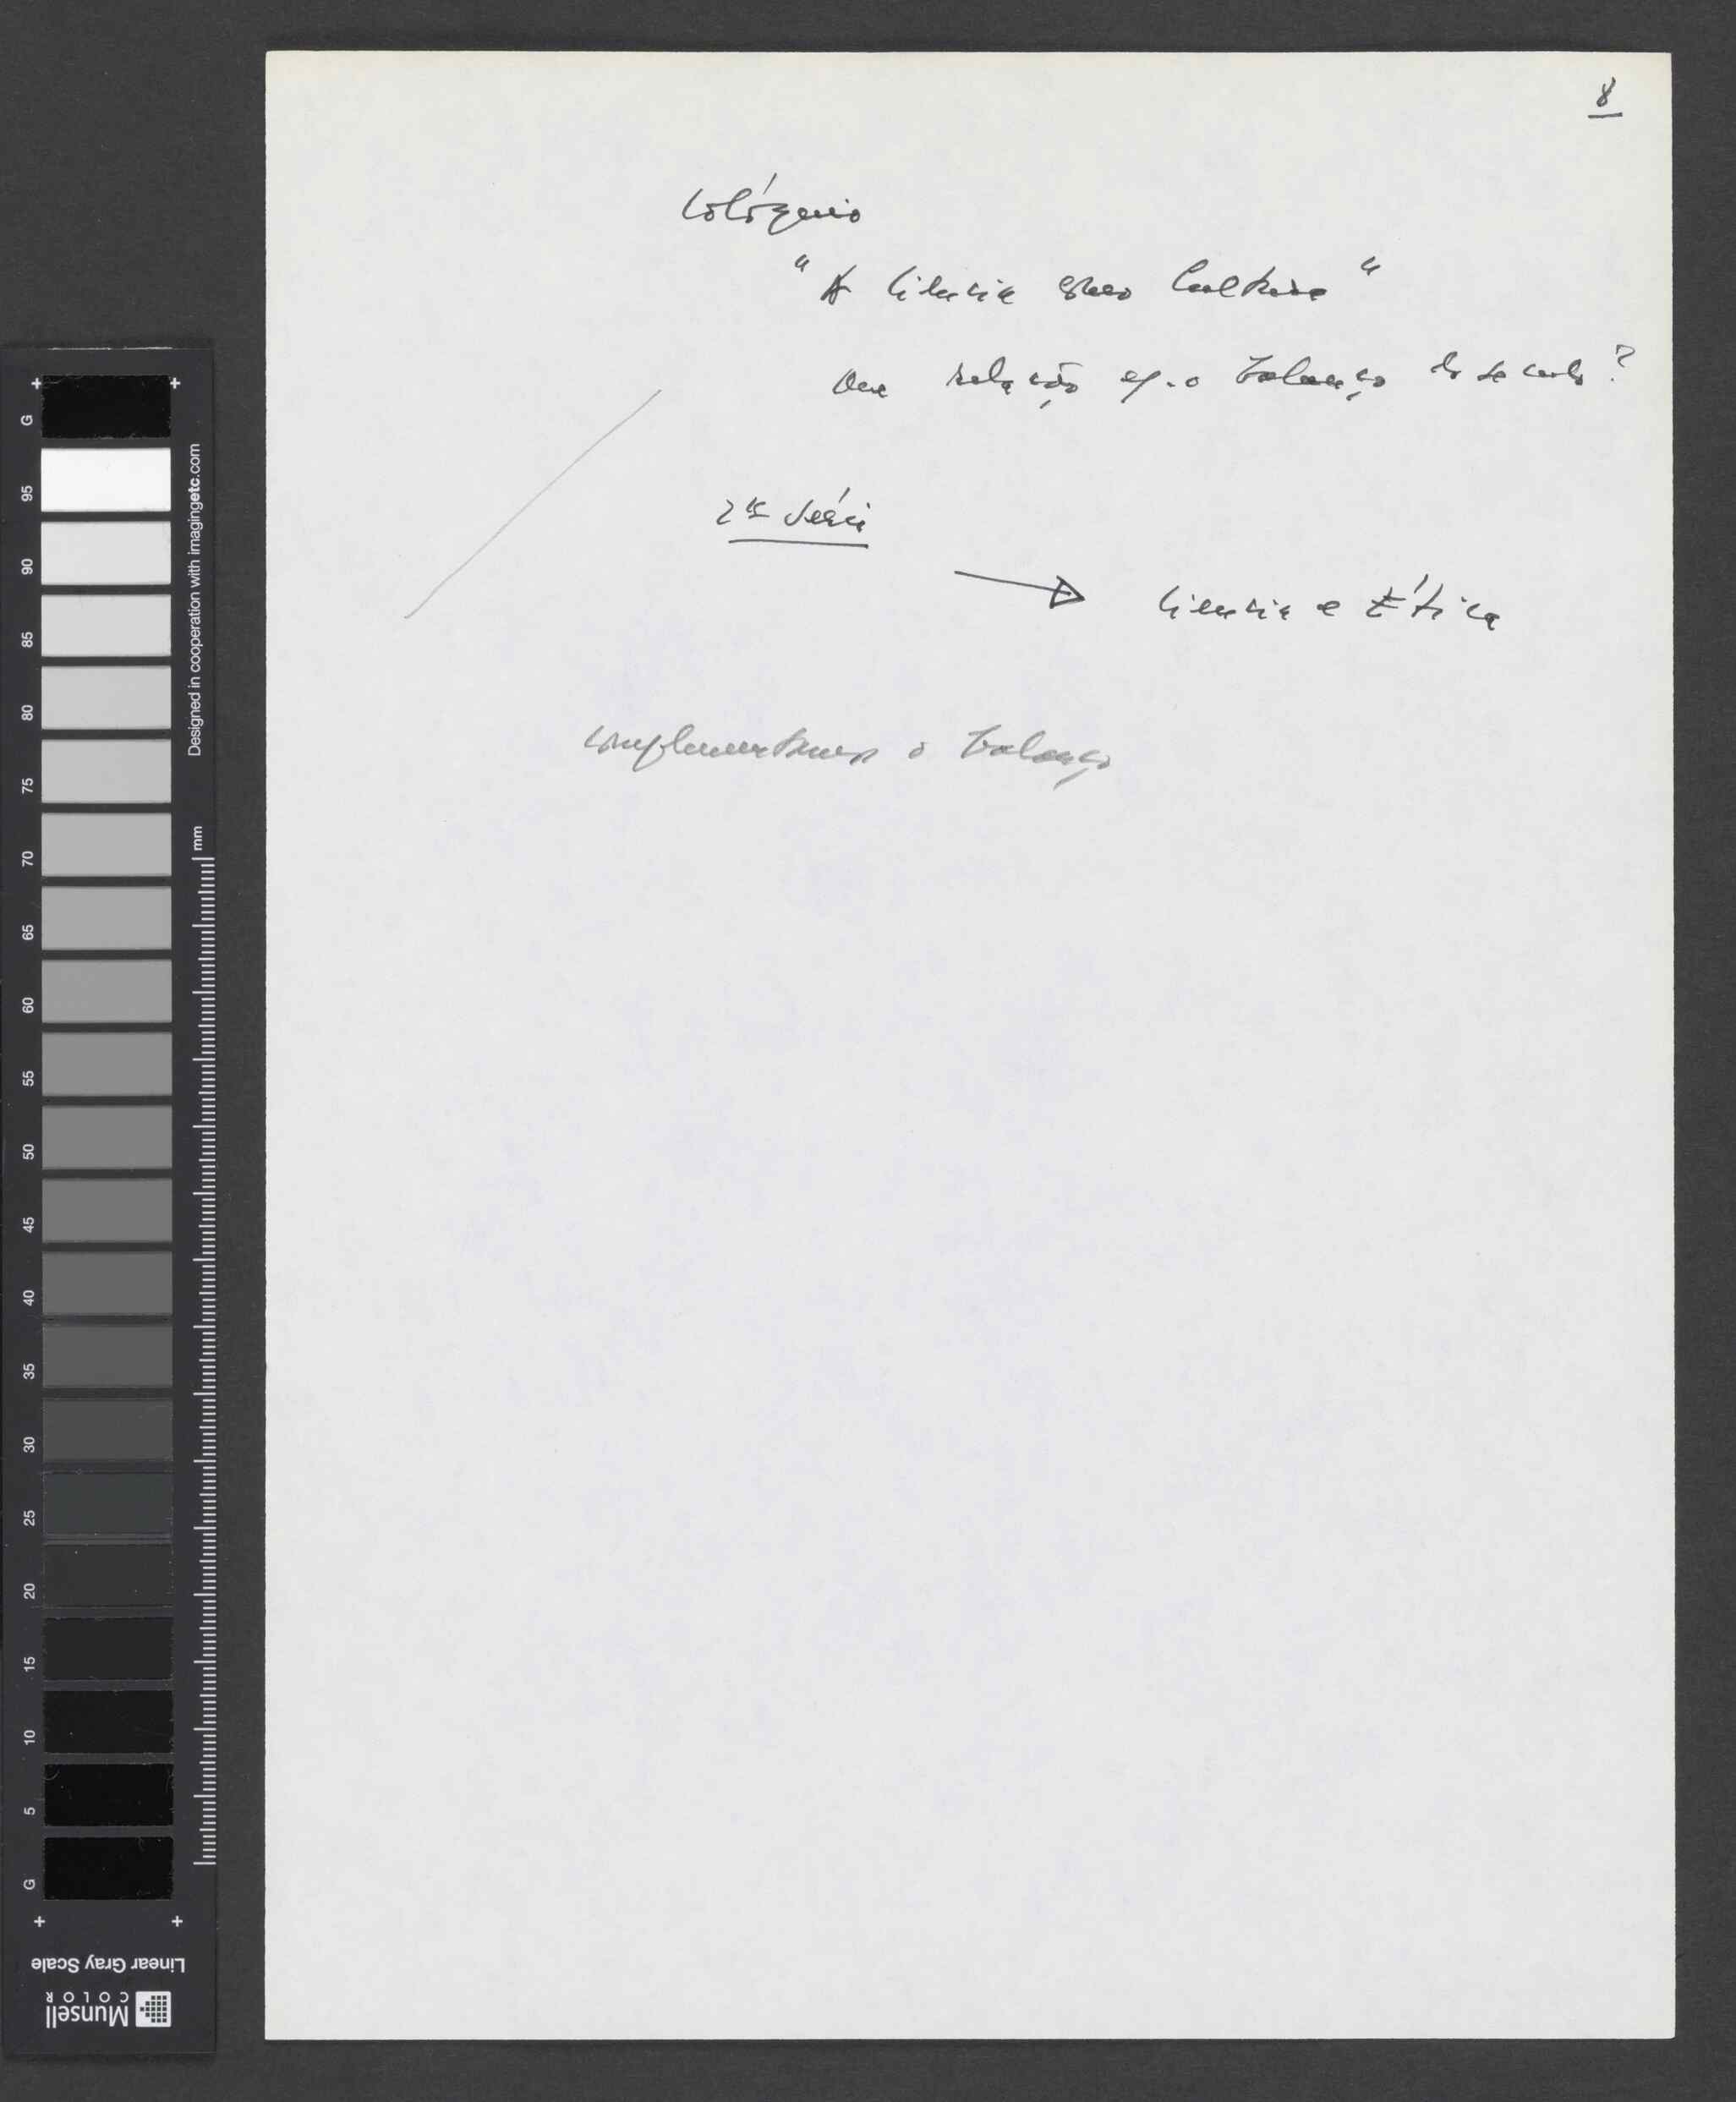 8
Colóquio
"A Ciência como Cultura"
Que relação c/ o balanço do século?
2ª série
Ciência e Ética
complementares o balanço
G 95 90 85 80 75 70 65 60 55 50 45 40 35 30 25 20 15 10 5 G
Designed in cooperation with imagingetc.com
mm
Linear Gray Scale
Munsell
COLOR